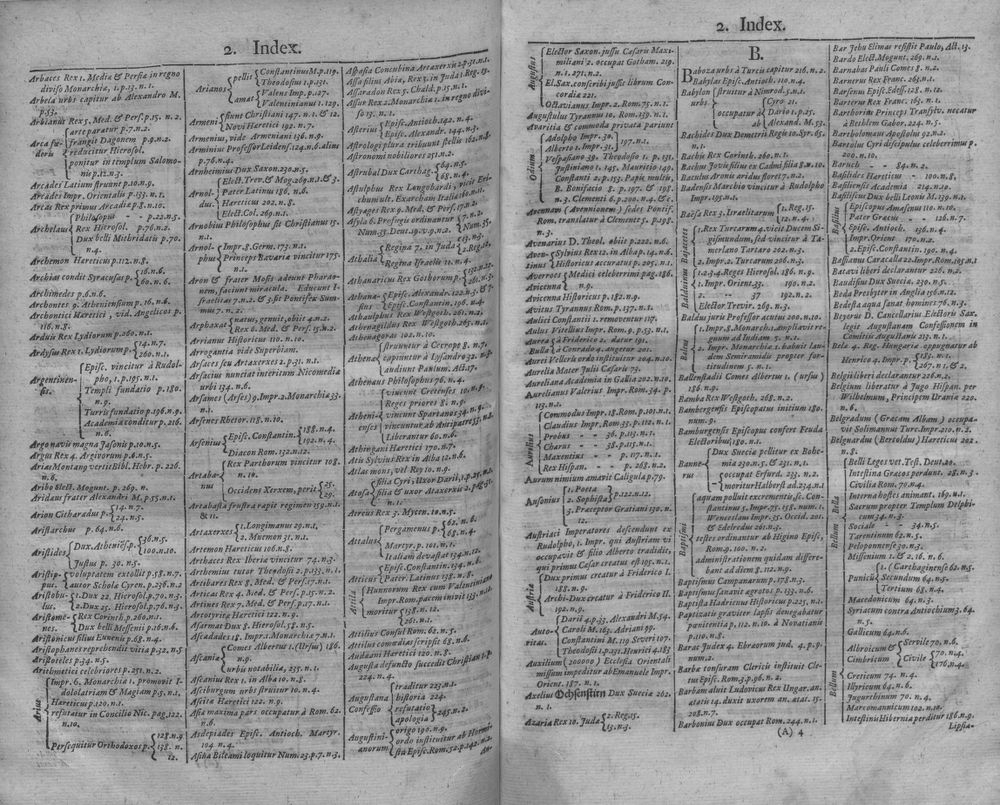 2. Index.
Arbaces Rex 1. Media & Persia in regno
diviso Monarchia, 1. p.13. n.1.
Arbela urbs capitur ab Alexandro M.
p.53.
Arbianus Rex 5. Med. & Pers. p.15. n.2.
Arca fœ-
deris
arte paratur p.7. n.2.
frangit Dagonem p.9. n.2.
reducitur Hierosol.
ponitur in templum Salomo-
nis p.12. n.3.
Arcades Latium struunt p.10. n.9.
Arcades Impr. Orientalis p.131. n.1.
Arcas Rex primus Arcadia p.8. n.10.
Archelaus
Philosophus - p.22. n.5.
Rex Hierosol. p.76. n.2.
Dux belli Mithridatis p.70.
n.4.
Archemon Hareticus p.112. n.8.
Archias condit Syracusas p.
16. n.6.
60. n.6.
Archimedes p.6. n.6.
Archontes 9. Atheniensium p.16. n.6.
Archontici Haretici, vid. Angelicos p.
116. n.8.
Arduis Rex Lydiorum p.260. n.1.
Ardysus Rex 1. Lydiorum p.
14. n.7.
260. n.1.
Argentinen-
sis.
Episc. vincitur à Rudol-
pho, 1. p.195. n.1.
Templi fundatio p.180.
n.9.
Turris fundatio p.196. n.9.
Academia conditur p.216.
n.6.
Argo navis magna Jasonis p.10. n.5.
Argus Rex 4. Argivorum p.6. n.5.
Arias Montang vertit Bibl. Hebr. p.226.
n.6.
Aribo Elect. Mogunt. p.269. n.
Aridaus frater Alexandri M. p.55. n.1.
Arion Citharadus p.
14. n.7.
24. n.5.
Aristarchus p.64. n.6.
Aristides
Dux Atheniës. p.
36. n.5.
100. n.10.
Justus p.30. n.5.
Aristip-
pus
voluptatem extollit p.58. n.7.
autor Schola Cyren. p.326. n.2
Aristobu-
lus.
1. Dux 22. Hierosol. p.70. n.3.
2. Dux 25. Hierosol. p.76. n.3.
Aristome-
nes.
Rex Corinth. p.260. n.1.
Dux belli Messenii p.26. n.6.
Aristonicus filius Eumenis p.68. n.4.
Aristophanes reprehendit vitia p.32. n.5
Aristoteles p.34. n.5.
Arithmetici celebriores p.251. n.2.
Arius
Impr. 6. Monarchia 1. promovit I-
dololatriam & Magiam p.5. n.1.
Hareticus p.120. n.1.
refutatur in Concilio Nic. pag. 122.
n.10.
Persequitur Orthodoxos p.
128. n.9
138. n.
12.
Arianos
pellit
Constantinus M. p.119.
Theodosius 1. p.131.
amat
Valens Imp. p.127.
Valentinianus 1. 129.
Armeni
fiunt Christiani 147. n.1. & 12
Novi Haretici 192. n.7.
Armenii vide. Armeniani 136. n.9.
Arminius Professor Leidens. 124. n.6. alius
p.76. n.4.
Arnheimius Dux Saxon. 230. n.5.
Arnol-
dus
Elect. Trev. & Mog. 269. n.1. & 3
Pater Latinus 186. n.6.
Hareticus 202. n.8.
Elect. Col. 269. n.1.
Arnobius Philosophus fit Christianus 15.
n.6.
Arnol-
phus
Impr. 8. Germ. 173. n.1.
Princeps Bavaria vincitur 175.
n.1.
Aron & frater Moses adeunt Pharao-
nem, faciunt miracula. Educunt I-
fraelitas 7. n.2. & 3. fit Pontifex Sum-
mus 7. n.2.
Arphaxat
natus, genuit, obiit 4. n.2.
Rex 6. Med. & Pers. 15. n.2.
Arrianus Historicus 110. n.10.
Arrogantia vide Superbiam.
Arsaces seu Artaxerxes 2. p.31. n.1.
Arsacius nunciat interitum Nicomedia
urbi 134. n.6.
Arsames (Arses) 9. Impr. 2. Monarchia 33.
n.1.
Arsenes Rhetor. 118. n.10.
Arsenius
Episc. Constantin.
188. n.4.
192. n.4.
Diacon. Rom. 132. n.12.
Artaba-
nus
Rex Parthorum vincitur 108.
n. 12.
Occidens Xerxem, perit
25.
29.
Artabasda frustra rapit regimen 159. n.1.
& 11.
Artaxerxes
1. Longimanus 29. n.1.
2. Mnemon 31. n.1.
Artemon Hareticus 106. n.8.
Arthaces Rex Iberia vincitur 74. n.3.
Arthemius curat Theodosii 2. p.133. n.1.
Artibares Rex 8. Med. & Pers. 17. n.1.
Articas Rex 4. Med. & Pers. 15. n.2.
Artines Rex 9. Med. & Pers. p.17. n.1.
Artotyrita Haretici 122. n.9.
Asarmat Dux 8. Hierosol. 58. n.5.
Ascadades 18. Impr. 1. Monarchia 7. n.1.
Ascania
Comes Albertus 1. (Ursus) 186.
n.9.
urbis notabilia, 235. n.1.
Ascanius Rex 1. in Alba 10. n.8.
Aschburgum urbs struitur 10. n.4.
Ascita Haretici 122. n.9.
Asia maxima pars occupatur à Rom. 62.
n.6.
Asclepiades Episc. Antioch. Martyr.
104. n.4.
Asina Bileami loquitur Num. 23. p.7. n.3.
Aspasia Concubina Artaxerxis 2. p.31. n.1.
Assa filius Abia, Rex 3. in Juda 1. Reg. 15.
Assaradon Rex 5. Chald. p.15. n.1.
Assur Rex 2. Monarchia 1. in regno divi-
so 15. n.1.
Asterius
Episc. Antioch. 142. n.4.
Episc. Alexandr. 144. n.3.
Astrologi plura tribuunt stellis 162. n.
Astronomi nobiliores 251. n.2.
Astrubal Dux Carthag.
64. n.5.
68. n.4.
Astulphus Rex Longobardi, vicit Eri-
chum ult. Exarcham Italia 160. n.1.
Astyages Rex 9. Med. & Pers. 17. n.1.
Asyla 6. Profugis ordinantur
7. n.2.
Num. 35. Deut. 19. v.9. n.2.
Num. 35.
Athalia
Regina 7. in Juda
2. Regu.
Regina Israëlis 11. n.4.
Athanaricus Rex Gothorum p.
Athana-
sius
Episc. Alexandr. 122. n.3. &
Episc. Constantin. 196. n.4.
Athaulphus Rex Westgoth. 261. n.2.
Athenagildus Rex Westgoth. 263. n.1.
Athenagoras 102. n.10.
Athenæ
struuntur à Cecrope 8. n.7.
capiuntur à Lysandro 32. n.
audiunt Paulum. Act. 17.
Athenaus Philosophus 76. n.4.
Athenien-
ses
vincunt Cretenses 10.
Reges priores 8. n.9.
vincunt Spartanos 34. n.
vincuntur ab Antipatre 53.
Liberantur 60. n.4.
Athingani Haretici 170. n.7.
Atis Sylvius Rex in Alba 12. n.6.
Atlas mons, vel Rep. 10. n.9.
Atossa
filia Cyri, Uxor Darii, 14. p.25
filia & uxor Ataxerxis 2. p.31
Atreus Rex 3. Mycen. 10. n.5.
Attalus
Pergamenus p.
62. n.6.
68.
Martyr. p.101. n.1.
Italiam devastat 134. n.12.
Atticus
Episc. Constantin. 134. n.6.
Pater Latinus 138. n.8.
Attila
Hunnorum Rex cum Valentiniano
Impr. Rom. pacem invit 133. n.1.
moritur
138. n.12.
Attilius Consul Rom. 62. n.5.
Attius comœdias scripsit 68. n.6.
Audiani Haretici 120. n.7.
Augusta defuncto succedit Christiani 1. p.
Augustana
Confessio
traditur 223. n.1.
historia 224.
refutatio
apologia
245. n.2.
Augustini-
anorum
origo 190. n.9.
ordo instituitur ab Hormis
sta Episc. Rom. 52. p.242. n.2.
Au-
2. Index.
Augustus
Elector Saxon. jussu Cæsaris Maxi-
miliani 2. occupat Gotham. 219.
n.1. 271. n.2.
El. Sax. conscribi jussit librum Con-
cordia 221.
Octavianus Impr. 2. Rom. 75. n.1.
Augustulus Tyrannus 10. Rom. 139. n.1.
Avaritia & commoda privata pariunt
Odium
Adolpho Imp. 197.
Alberto 1. Imp. 197. n.1.
Vespasiano 39. Theodosio 1. p.131.
Justiniano 1. 145. Mauritio 149.
Constanti 2. p.153. Papæ multis
B. Bonifacio 8. p.197. & 198.
n.3. Clementi 6. p.200. n.4. &
Avenam (Avenionem) sedes Pontif.
Rom. translatur à Clemente 5. p.198.
n.3.
Avenarius D. Theol. obiit p.222. n.6.
Aven-
tinus
Sylvius Rex 12. in Albap. 14. n.6.
Historicus accuratus p.205. n.1.
Averroes
Medici celeberrimi pag. 186.
Avicenna
n.9.
Avicenna Historicus p.182. n.9.
Avitus Tyrannus Rom. p.137. n.1.
Aulici Constantii 1. removentur 117.
Aulus Vitellius Impr. Rom. 9. p.53. n.1.
Aurea
Bulla
à Friderico 2. datur 191.
à Conrado 4. augetur 201.
Aurei Velleris ordo instituitur 204. n.10.
Aurelia Mater Julii Cæsaris 73.
Aureliana Academia in Gallia 202. n.10.
Aurelianus Valerius Impr. Rom. 34. p.
113. n.1.
Aurelius
Commodus Impr. 18. Rom. p.101. n.1.
Claudius Impr. Rom. 33. p.112. n.1.
Probus - - 36. p.113. n.1.
Charus - - 38. p.115. n.1.
Maxentius - - p.117. n.1.
Rex Hispan. - p.268. n.2.
Aurum nimium amarit Caligula p.79.
Ausonius
1. Poeta
2. Sophista
p.122. n.12.
3. Præceptor Gratiani 130. n.
12.
Austriaci Imperatores descendunt ex
Rudolpho, 1. Impr. qui Austriam vi
occupavit & filio Alberto tradidit,
qui primus Cæsar creatus est 195. n.1.
Austria
Dux primus creatur à Friderico I.
188. n.9.
Archi-Dux creatur à Friderico II.
192. n.9.
Auto-
ritas
Darii 29. p.33. Alexandri M. 54.
Caroli M. 163. Adriani 99.
Constantini M. 119. Severi 107.
Theodosii 1. p.131. Henrici 4. 183
Auxilium (200000) Ecclesia Orientali
missum impeditur ab Emanuele Impr.
Orient. 187. n.1.
Axelius Ochsenstirn Dux Suecia 262.
n.1.
Azaria Rex 10. Juda
2. Reg. 15.
15. n.3.
B.
Baboza urbs à Turcis capitur 216. n.2.
Babylas Episc. Antioch. 110. n.4.
Babylon
urbs.
struitur à Nimrod. 5. n.1.
occupatur à
Cyro 21.
Dario 1. p.25.
Alexand. M. 53.
Bachides Dux Demetrii Regis 10. Syr. 65.
n.1.
Bachis Rex Corinth. 260. n.1.
Bachus Jovis filius ex Cadmi filia 8. n.10.
Baculus Aronis aridus floret 7. n.2.
Badensis Marchio vincitur à Rudolpho
Impr. 195. n.1.
Baësa Rex 3. Israëlitarum
1. Reg. 15.
12. n.4.
Bajazetes
1. Rex Turcarum 4. vicit Ducem Si-
gismundum, sed vincitur à Ta-
merlano Tartaro 202. n.3.
2. Impr. Turcarum 206. n.3.
Balduinus
1. 2. 3. 4. Reges Hierosol. 186. n.9.
1. Impr. Orient. 33. 190. n.2.
2. - - 37. 192. n.2.
Elector Trevir. 269. n.3.
Baldus juris Professor acutus 200. n.10.
Belus
1. Impr. 8. Monarcha 1. ampliavit re-
gnum ad Indiam 5. n.1.
2. Impr. Monarchia 1. babuit lau-
dem Semiramidis propter for-
titudinem 5. n.1.
Ballenstadii Comes Albertus 1. (ursus)
186. n.9.
Bamba Rex Westgoth. 268. n.2.
Bambergensis Episcopatus initium 180.
num. 9.
Bamburgensis Episcopus confert Feuda
Electoribus 180. n.1.
Banner
Dux Suecia pellitur ex Bohe-
mia 230. n.5. & 231. n.1.
occupat Erfurd. 233. n.2.
moritur Halberst. ad. 234. n.1
Baptismi
aquam polluit excremento, fic Con-
stantinus 5. Impr. 75. 158. num. 1.
Wenceslaus Impr. 35. Occid. 201
& Edelredus 261. n.3.
testes ordinantur ab Higino Episc.
Rom. 9. 100. n.2.
administrationem quidam differe-
bant ad diem 8. 112. n.9.
Baptismus Campanarum p.178. n.3.
Baptismus sanavit agrotos p.133. n.6.
Baptista Hadrienus Historicus p.225. n.1.
Baptizatis graviter lapsis denegabatur
pœnitentia p.112. n.10. à Novatianis
p.110. n.8.
Barac Judex 4. Ebræorum jud. 4. p.9.
num. 2.
Barba tonsuram Clericis instituit Cle-
tus Episc. Rom. 3. p.96. n.2.
Barbam aluit Ludovicus Rex Ungar. an.
ætatis 14. duxit uxorem an. ætat. 15.
208. n.7.
Barbonius Dux occupat Rom. 244. n.1.
(A) 4
Bar Jehu Elimas resistit Paulo, Act. 13.
Bardo Elect. Mogunt. 269. n.1.
Barnabas Pauli Comes 8. n.2.
Barnerus Rex Franc. 263. n.1.
Barsenus Episc. Edess. 128. n.12.
Barterus Rex Franc. 163. n.1.
Barthorius Princeps Transylv. necatur
à Bethlem Gabor. 224. n.5.
Bartholomaus Apostolus 92. n.2.
Bartolus Cyri discipulus celeberrimus p.
200. n.10.
Baruch - - p.84. n.2.
Basilides Hareticus - 100. n.8.
Basiliensis Academia 214. n.10.
Basiliscus Dux belli Leonis M. 139. n.1.
Basilius
Episcopus Amasenus 110. n.10.
Pater Gracus - 126. n.7.
Episc. Antioch. 136. n.4.
Impr. Orient 170. n.2.
2. Episc. Constantin. 190. n.4.
Bassianus Caracalla 22. Impr. Rom. 105. n.1
Batavi liberi declarantur 226. n.2.
Baudisius Dux Suecia, 230. n.5.
Beda Presbyter in Anglia 156. n.12.
Bedesda aqua sanat homines 76. n.3.
Beyerus D. Cancellarius Electoris Sax.
legit Augustanam Confessionem in
Comitiis Augustanis 213. n.1.
Bela 4. Reg. Hungaria oppugnatur ab
Henrico 4. Impr. p.
183. n.1.
267. n.1 & 2.
Belgii liberi declarantur 226. n.2.
Belgium liberatur à Jugo Hispan. per
Wilhelmum, Principem Urania 220.
n.6.
Belgradum (Gracam Albam) occupa-
vit Solimannus Tur. Impr. 210. n.2.
Belgnardus (Bertoldus) Hareticus 202.
n.8.
Bella
Belli Leges vet. Test. Deut. 20.
Intestina Gratos perdunt. 28. n.5.
Civilia Rom. 70. n.4.
Interna hostes animant. 169. n.1.
Sacrum propter Templum Delphi-
cum 34. n.3.
Sociale - - 34. n.5.
Tarentinum 62. n.5.
Peloponense 30. n.3.
Missenum 1. & 2. 16. n.6.
Punicum
1. (Carthaginense 62. n.5.
Secundum 64. n.5.
Tertium 68. n.4.
Macedonicum 64. n.5.
Syriacum contra Antiochum 3. 64.
n.5.
Bellum
Gallicum 64. n.6.
Albroicum &
Cimbricum
Servile 70. n.6.
Civile
70. n.4.
176. n.4.
Creticum 74. n.4.
Illyricum 64. n.6.
Jugurthinum 70. n.4.
Marcomannicum 102. n.10.
Intestinis Hibernia perditur 186. n.9.
Lipsia-